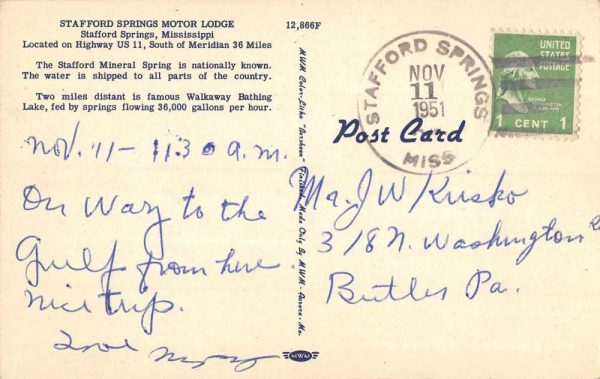 STAFFORD SPRINGS MOTOR LODGE
Stafford Springs, Mississippi
Located on Highway US 11, South of Meridian 36 Miles
The Stafford Mineral Spring is nationally known.
The water is shipped to all parts of the country.
Two miles distant is famous Walkaway Bathing
Lake, fed by springs flowing 36,000 gallons per hour.
12,866F
Nov. 11 - 11:30 a.m.
On Way to the
Gulf from here
nice trip.
Love
MWM Color-Litho "Durcheen" Finished Made Only By MWM - Aurora, Mo.
MWM
STAFFORD SPRINGS
NOV
11
1951
MISS
UNITED
STATES
POSTAGE
GEORGE
WASHINGTON
1 CENT 1
Post Card
Mr. J W Krisko
318 N. Washington
Butler Pa.